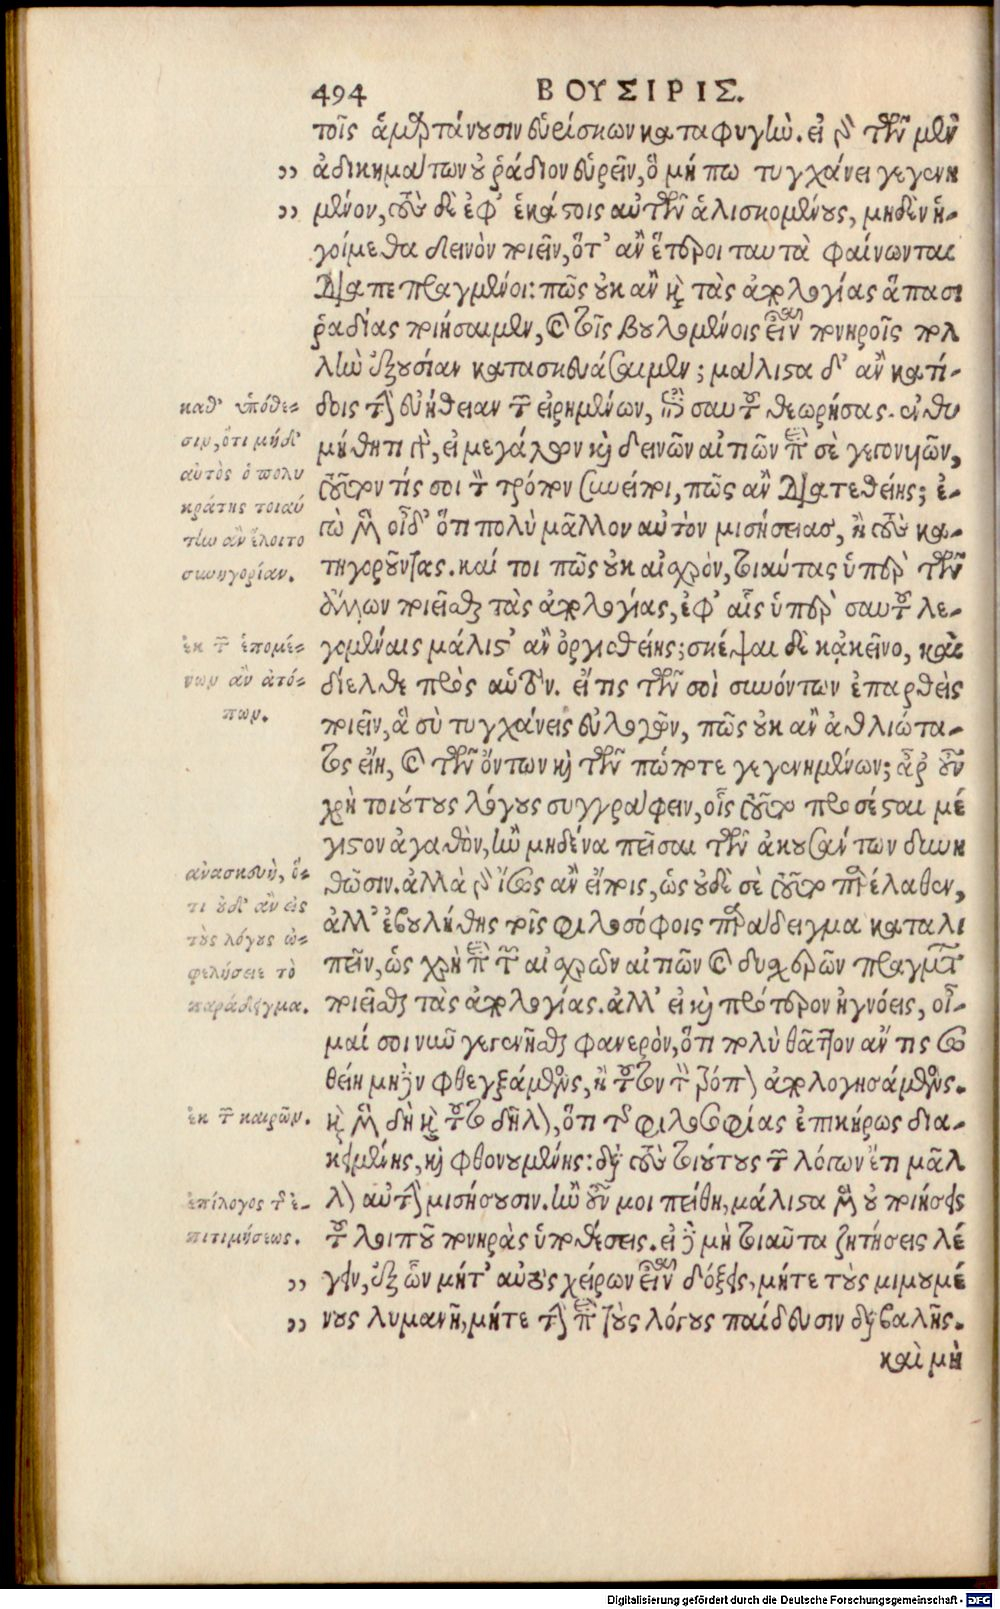 494 ΒΟΥΣΙΡΙΣ.
τοῖς ἁμαρτάνουσιν εὑρίσκων καταφυγὴν. εἰ γὰρ τῶν μὲν
ἀδικημάτων οὐ ῥάδιον εὑρεῖν, ὃ μή πω τυγχάνει γεγενη
μένον, τοὺς δὲ ἐφ' ἑκάστοις αὐτῶν ἁλισκομένους, μηδὲν ἡ-
γοίμεθα δεινὸν ποιεῖν, ὅτ' ἂν ἕτεροι ταυτὰ φαίνωνται
διαπεπραγμένοι: πῶς οὐκ ἂν καὶ τὰς ἀπολογίας ἅπασι
ῥαδίας ποιήσαιμεν, καὶ τοῖς βουλομένοις εἶναι πονηροῖς πολ
λὴν ἐξουσίαν κατασκευάσαιμεν; μάλιστα δ' ἂν κατί-
δοις τὴν εὐήθειαν τῶν εἰρημένων, ἐπὶ σαυτοῦ θεωρήσας. ἐνθυ
μήθητι γὰρ, εἰ μεγάλων καὶ δεινῶν αἰτιῶν περὶ σὲ γεγονυιῶν,
τοῦτον τίς σοι τὸν τρόπον συνείποι, πῶς ἂν διατεθείης; ἐ-
γὼ μὲν οἶδ' ὅτι πολὺ μᾶλλον αὐτὸν μισήσειας, ἢ τοὺς κα-
τηγοροῦντας. καί τοι πῶς οὐκ αἰσχρὸν, τοιαύτας ὑπὲρ τῶν
ἄλλων ποιεῖσθαι τὰς ἀπολογίας, ἐφ' αἷς ὑπὲρ σαυτοῦ λε-
γομέναις μάλιστ' ἂν ὀργισθείης; σκέψαι δὲ κἀκεῖνο, καὶ
δίελθε πρὸς αὑτόν. εἴ τις τῶν σοὶ συνόντων ἐπαρθεὶς
ποιεῖν, ἃ σὺ τυγχάνεις εὐλογῶν, πῶς οὐκ ἂν ἀθλιώτα-
τος εἴη, καὶ τῶν ὄντων καὶ τῶν πώποτε γεγενημένων; ἆρ' οὖν
χρὴ τοιούτους λόγους συγγράφειν, οἷς τοῦτο προσέσται μέ
γιστον ἀγαθὸν, ἢν μηδένα πεῖσαι τῶν ἀκουσάντων δυνη
θῶσιν. ἀλλὰ γὰρ ἴσως ἂν εἴποις, ὡς οὐδὲ σὲ τοῦτο παρέλαθεν,
ἀλλ' ἐβουλήθης τοῖς φιλοσόφοις παράδειγμα καταλι
πεῖν, ὡς χρὴ περὶ τῶν αἰσχρῶν αἰτιῶν καὶ δυσχερῶν πραγμάτων
ποιεῖσθαι τὰς ἀπολογίας. ἀλλ' εἰ καὶ πρότερον ἠγνόεις, οἶ-
μαί σοι νῦν γεγενῆσθαι φανερὸν, ὅτι πολὺ θᾶττον ἄν τις σω
θείη μηδὲν φθεγξάμενος, ἢ τοῦτον τὸν τρόπον ἀπολογησάμενος.
καὶ μὲν δὴ καὶ τοῦτο δῆλον, ὅτι τῆς φιλοσοφίας ἐπικήρως δια-
κειμένης, καὶ φθονουμένης: διὰ τοὺς τοιούτους τῶν λόγων ἔτι μᾶλ
λον αὐτὴν μισήσουσιν. ἢν οὖν μοι πείθῃ, μάλιστα μὲν οὐ ποιήσεις
τοῦ λοιποῦ πονηρὰς ὑποθέσεις. εἰ δὲ μὴ τοιαῦτα ζητήσεις λέ
γειν, ἐξ ὧν μήτ' αὐτὸς χείρων εἶναι δόξεις, μήτε τοὺς μιμουμέ
νους λυμανῇ, μήτε τὴν περὶ τοὺς λόγους παίδευσιν διαβαλῇς.
καὶ μὴ
καθ' ὑπόθε-
σιν, ὅτι μήδ'
αὐτὸς ὁ πολυ
κράτης τοιαύ
την ἂν ἕλοιτο
συνηγορίαν.
ἐκ τῶν ἑπομέ-
νων ἂν ἀτό-
πων.
ἀνασκευὴ, ὅ-
τι οὐδ' ἂν εἰς
τοὺς λόγους ὠ-
φελήσειε τὸ
παράδειγμα.
ἐκ τῶν καιρῶν.
ἐπίλογος τῆς ἐ-
πιτιμήσεως.